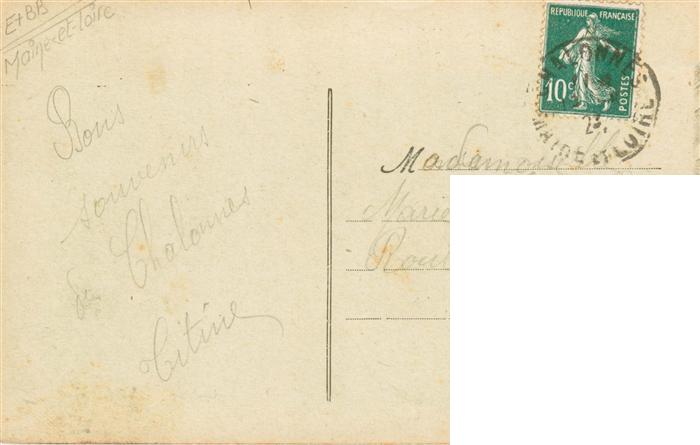 E+BB
Maine-et-Loire
Bons
souvenirs
de Chalonnes
Titine
REPUBLIQUE FRANÇAISE
10c
POSTES
CHALONNES
MAINE ET LOIRE
Mademoise
Marie
Rou